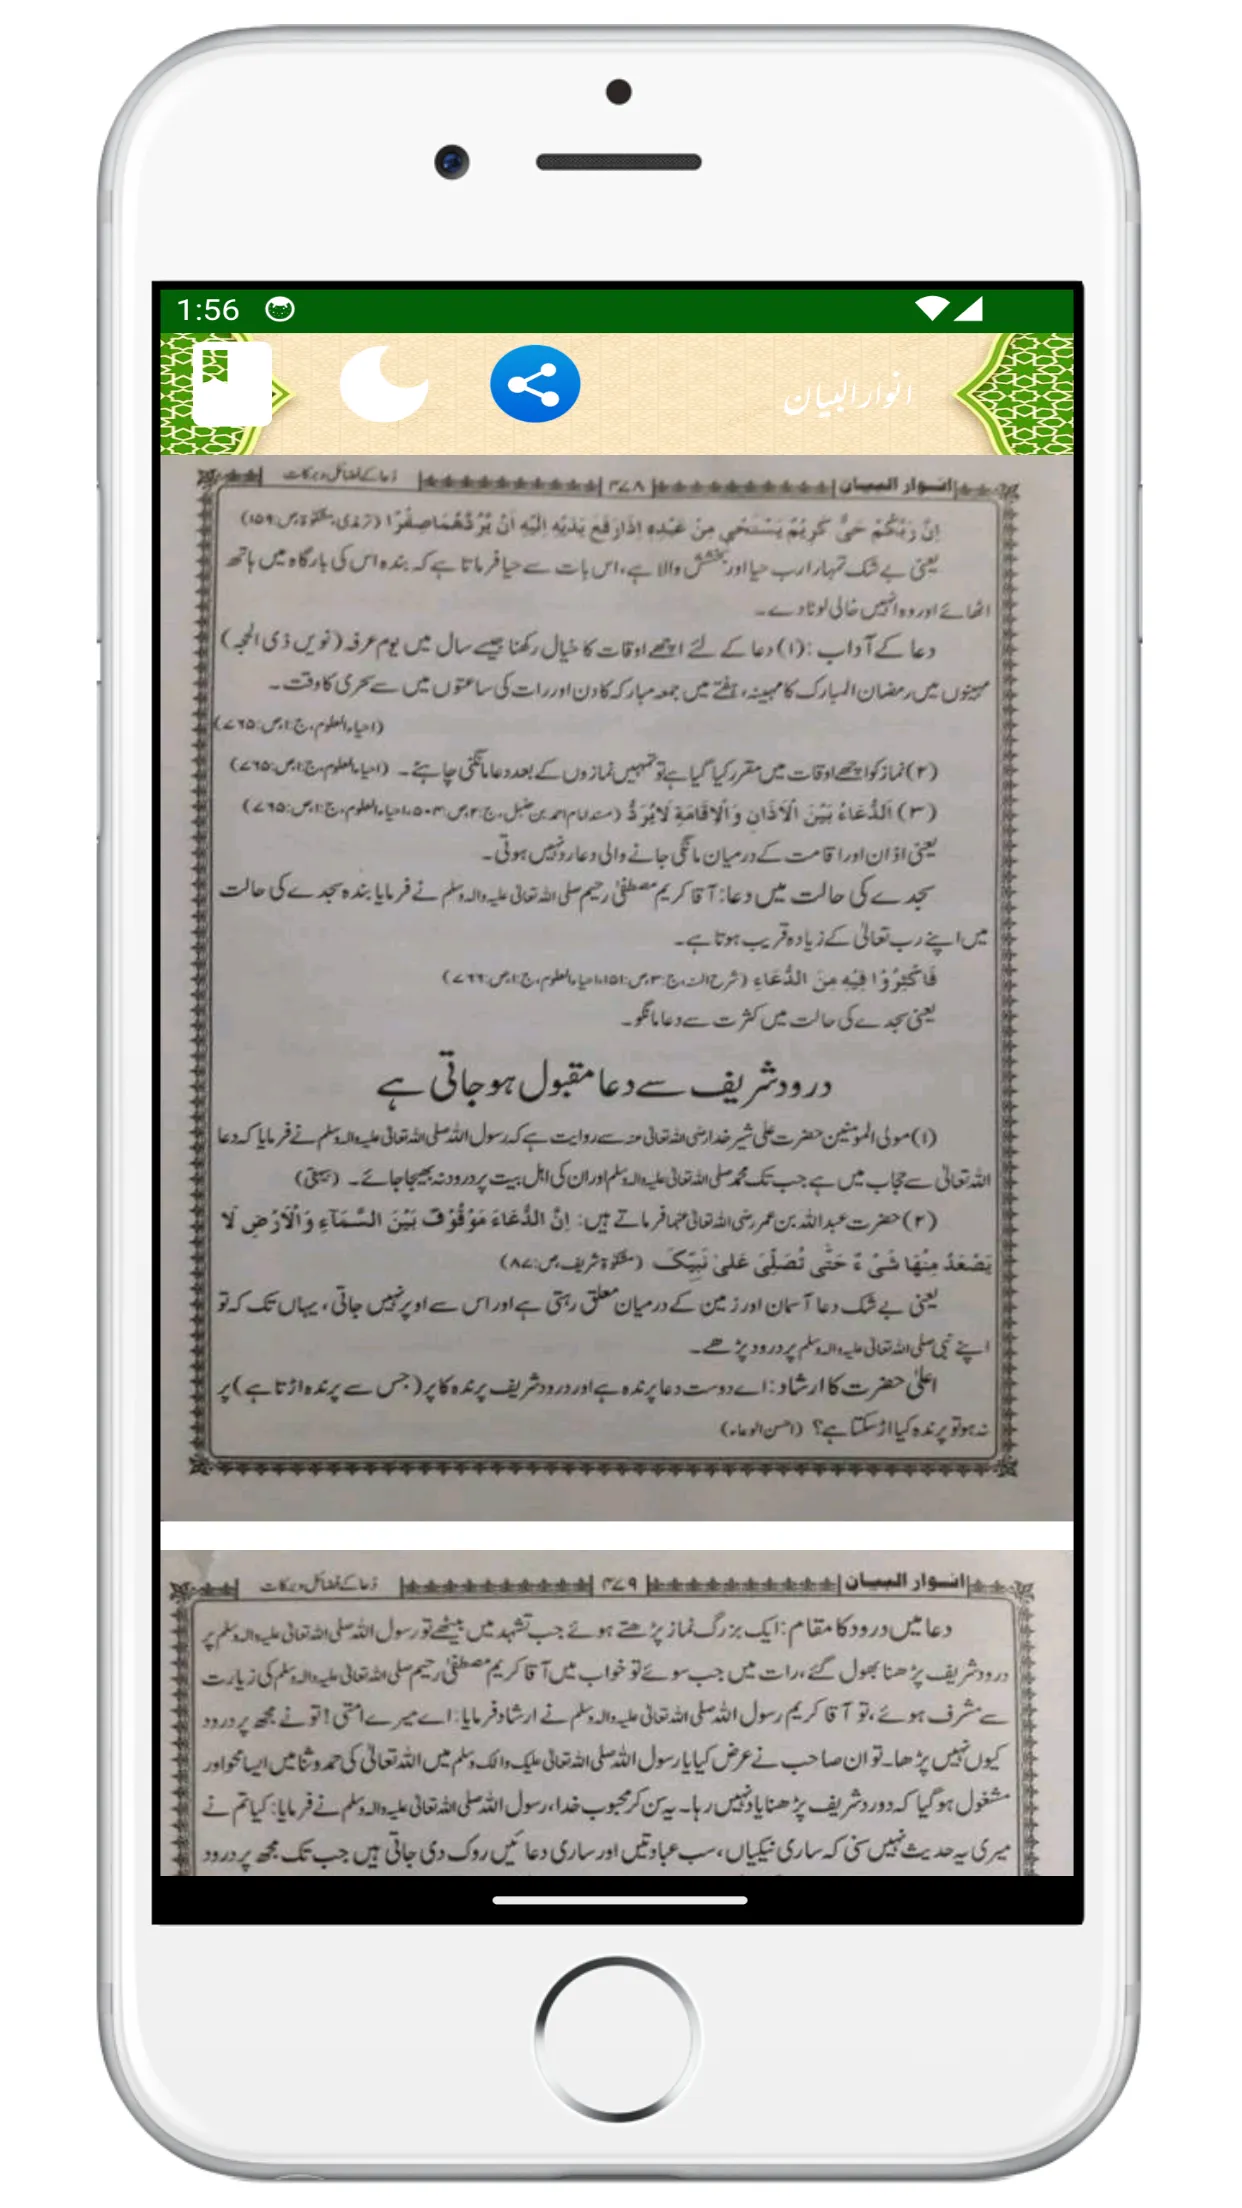 1:56
انوار البیان
انوار البیان ۴۷۸ دعا کے فضائل و برکات
اِنَّ رَبَّکُمْ حَیٌّ کَرِیْمٌ یَسْتَحْیِ مِنْ عَبْدِهِ اِذَا رَفَعَ یَدَیْهِ اِلَیْهِ اَنْ یَّرُدَّهُمَا صِفْرًا (ترمذی، مشکوٰۃ، ص:۱۵۹)
یعنی بے شک تمہارا رب حیا اور بخشش والا ہے، اس بات سے حیا فرماتا ہے کہ بندہ اس کی بارگاہ میں ہاتھ
اٹھائے اور وہ انہیں خالی لوٹا دے۔
دعا کے آداب : (۱) دعا کے لئے اچھے اوقات کا خیال رکھنا جیسے سال میں یوم عرفہ (نویں ذی الحجہ)
مہینوں میں رمضان المبارک کا مہینہ، ہفتے میں جمعہ مبارکہ کا دن اور رات کی ساعتوں میں سے سحری کا وقت۔
(احیاء العلوم، ج:۱، ص:۷۶۵)
(۲) نماز کو اچھے اوقات میں مقرر کیا گیا ہے تو تمہیں نمازوں کے بعد دعا مانگنی چاہئے۔ (احیاء العلوم، ج:۱، ص:۷۶۵)
(۳) اَلدُّعَاءُ بَیْنَ الْاَذَانِ وَالْاِقَامَةِ لَایُرَدُّ (مسند امام احمد بن حنبل، ج:۲، ص:۵۰۳، احیاء العلوم، ج:۱، ص:۷۶۵)
یعنی اذان اور اقامت کے درمیان مانگی جانے والی دعا رد نہیں ہوتی۔
سجدے کی حالت میں دعا: آقا کریم مصطفیٰ رحیم صلی اللہ تعالیٰ علیہ والہ وسلم نے فرمایا بندہ سجدے کی حالت
میں اپنے رب تعالیٰ کے زیادہ قریب ہوتا ہے۔
فَاَکْثِرُوْا فِیْهِ مِنَ الدُّعَاءِ (شرح السنہ، ج:۳، ص:۱۵۱، احیاء العلوم، ج:۱، ص:۷۶۶)
یعنی سجدے کی حالت میں کثرت سے دعا مانگو۔
درود شریف سے دعا مقبول ہو جاتی ہے
(۱) مولی المومنین حضرت علی شیر خدا رضی اللہ تعالیٰ عنہ سے روایت ہے کہ رسول اللہ صلی اللہ تعالیٰ علیہ والہ وسلم نے فرمایا کہ دعا
اللہ تعالیٰ سے حجاب میں ہے جب تک محمد صلی اللہ تعالیٰ علیہ والہ وسلم اور ان کی اہل بیت پر درود نہ بھیجا جائے۔ (بیہقی)
(۲) حضرت عبداللہ بن عمر رضی اللہ تعالیٰ عنہما فرماتے ہیں: اِنَّ الدُّعَاءَ مَوْقُوْفٌ بَیْنَ السَّمَآءِ وَالْاَرْضِ لَا
یَصْعَدُ مِنْهَا شَیْءٌ حَتّٰی تُصَلِّیَ عَلیٰ نَبِیِّکَ (مشکوٰۃ شریف، ص:۸۷)
یعنی بے شک دعا آسمان اور زمین کے درمیان معلق رہتی ہے اور اس سے اوپر نہیں جاتی، یہاں تک کہ تو
اپنے نبی صلی اللہ تعالیٰ علیہ والہ وسلم پر درود پڑھے۔
اعلیٰ حضرت کا ارشاد: اے دوست دعا پرندہ ہے اور درود شریف پرندہ کا پر (جس سے پرندہ اڑتا ہے) پر
نہ ہو تو پرندہ کیا اڑ سکتا ہے؟ (احسن الوعاء)
انوار البیان ۴۷۹ دعا کے فضائل و برکات
دعا میں درود کا مقام: ایک بزرگ نماز پڑھتے ہوئے جب تشہد میں بیٹھے تو رسول اللہ صلی اللہ تعالیٰ علیہ والہ وسلم پر
درود شریف پڑھنا بھول گئے، رات میں جب سوئے تو خواب میں آقا کریم مصطفیٰ رحیم صلی اللہ تعالیٰ علیہ والہ وسلم کی زیارت
سے مشرف ہوئے، تو آقا کریم رسول اللہ صلی اللہ تعالیٰ علیہ والہ وسلم نے ارشاد فرمایا: اے میرے امتی! تو نے مجھ پر درود
کیوں نہیں پڑھا۔ تو ان صاحب نے عرض کیا یا رسول اللہ صلی اللہ تعالیٰ علیک والک وسلم میں اللہ تعالیٰ کی حمد و ثنا میں ایسا محو اور
مشغول ہو گیا کہ دورد شریف پڑھنا یاد نہیں رہا۔ یہ سن کر محبوب خدا، رسول اللہ صلی اللہ تعالیٰ علیہ والہ وسلم نے فرمایا: کیا تم نے
میری یہ حدیث نہیں سنی کہ ساری نیکیاں، سب عبادتیں اور ساری دعائیں روک دی جاتی ہیں جب تک مجھ پر درود